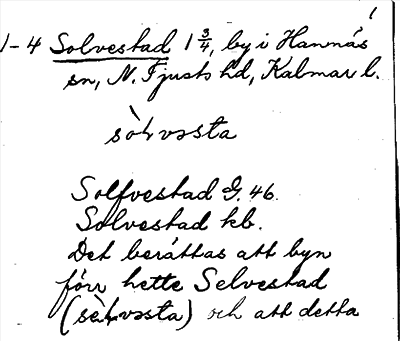 1
1-4 Solvestad 1 3/4, by i Hannäs
sn, N. Tjusts hd, Kalmar l.
sòłvəsta
Solfvestad G. 46.
Solvestad kb.
Det berättas att byn
förr hette Selvestad
(sèłvəsta) och att detta